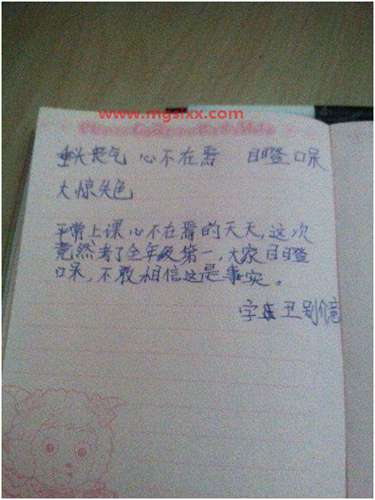 www.mgslxx.com
垂头丧气 心不在焉 目瞪口呆
大惊失色
平常上课心不在焉的天天,这次
竟然考了全年级第一,大家目瞪
口呆,不敢相信这是事实。
字丑别介意